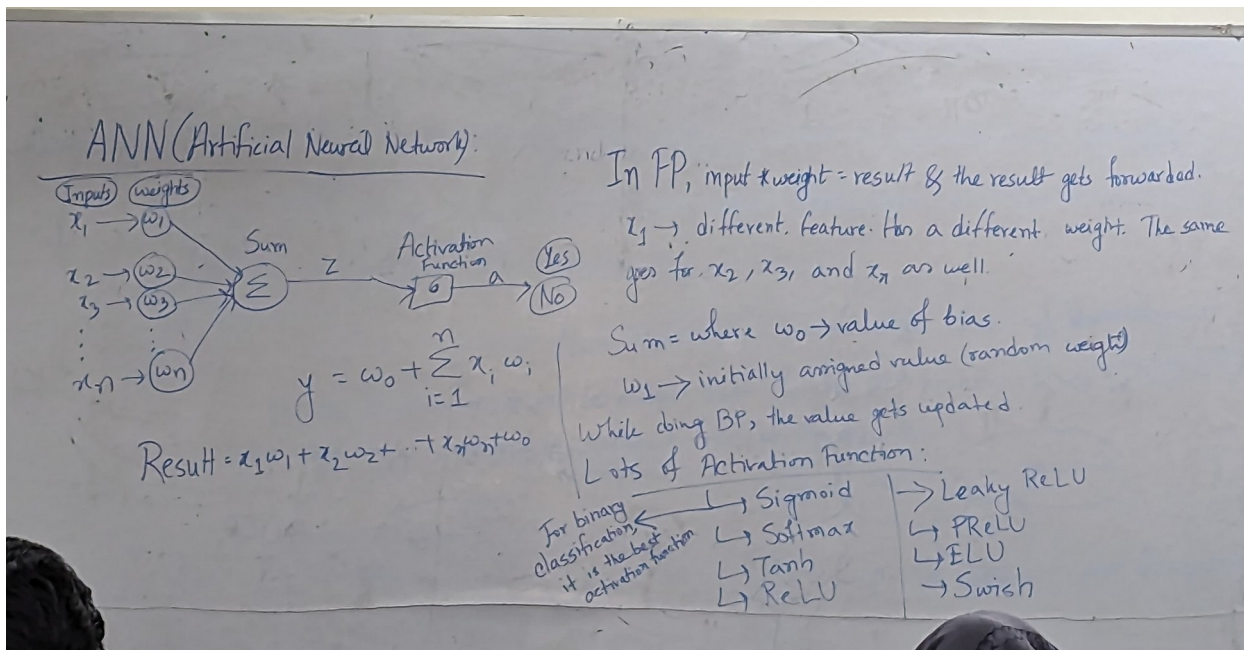 ANN (Artificial Neural Network):
Inputs weights
x₁ → ω₁
x₂ → ω₂
x₃ → ω₃
xn → ωn
Sum
Σ
Z
Activation
Function
6
a
Yes
No
y = ω₀ + Σ xᵢ ωᵢ
n
i=1
Result = x₁ω₁ + x₂ω₂ + ... + xnωn + ω₀
In FP, input * weight = result & the result gets forwarded.
x₁ → different feature. Has a different weight. The same
goes for x₂, x₃, and xn as well.
Sum = where ω₀ → value of bias.
ω₁ → initially assigned value (random weight)
While doing BP, the value gets updated.
Lots of Activation Function:
For binary
classification,
it is the best
activation function
↳ Sigmoid
↳ Softmax
↳ Tanh
↳ ReLU
→ Leaky ReLU
↳ PReLU
↳ ELU
→ Swish